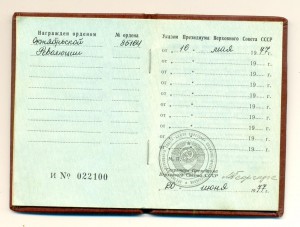 Награжден орденом
№ ордена
Октябрьской
Революции
86104
И № 022100
Указом Президиума Верховного Совета СССР
от „ 10 " мая 1977 г.
от „ " 19 г.
от „ " 19 г.
от „ " 19 г.
от „ " 19 г.
от „ " 19 г.
от „ " 19 г.
от „ " 19 г.
от „ " 19 г.
М. П.
Секретарь Президиума
Верховного Совета СССР
июня 1977 г.